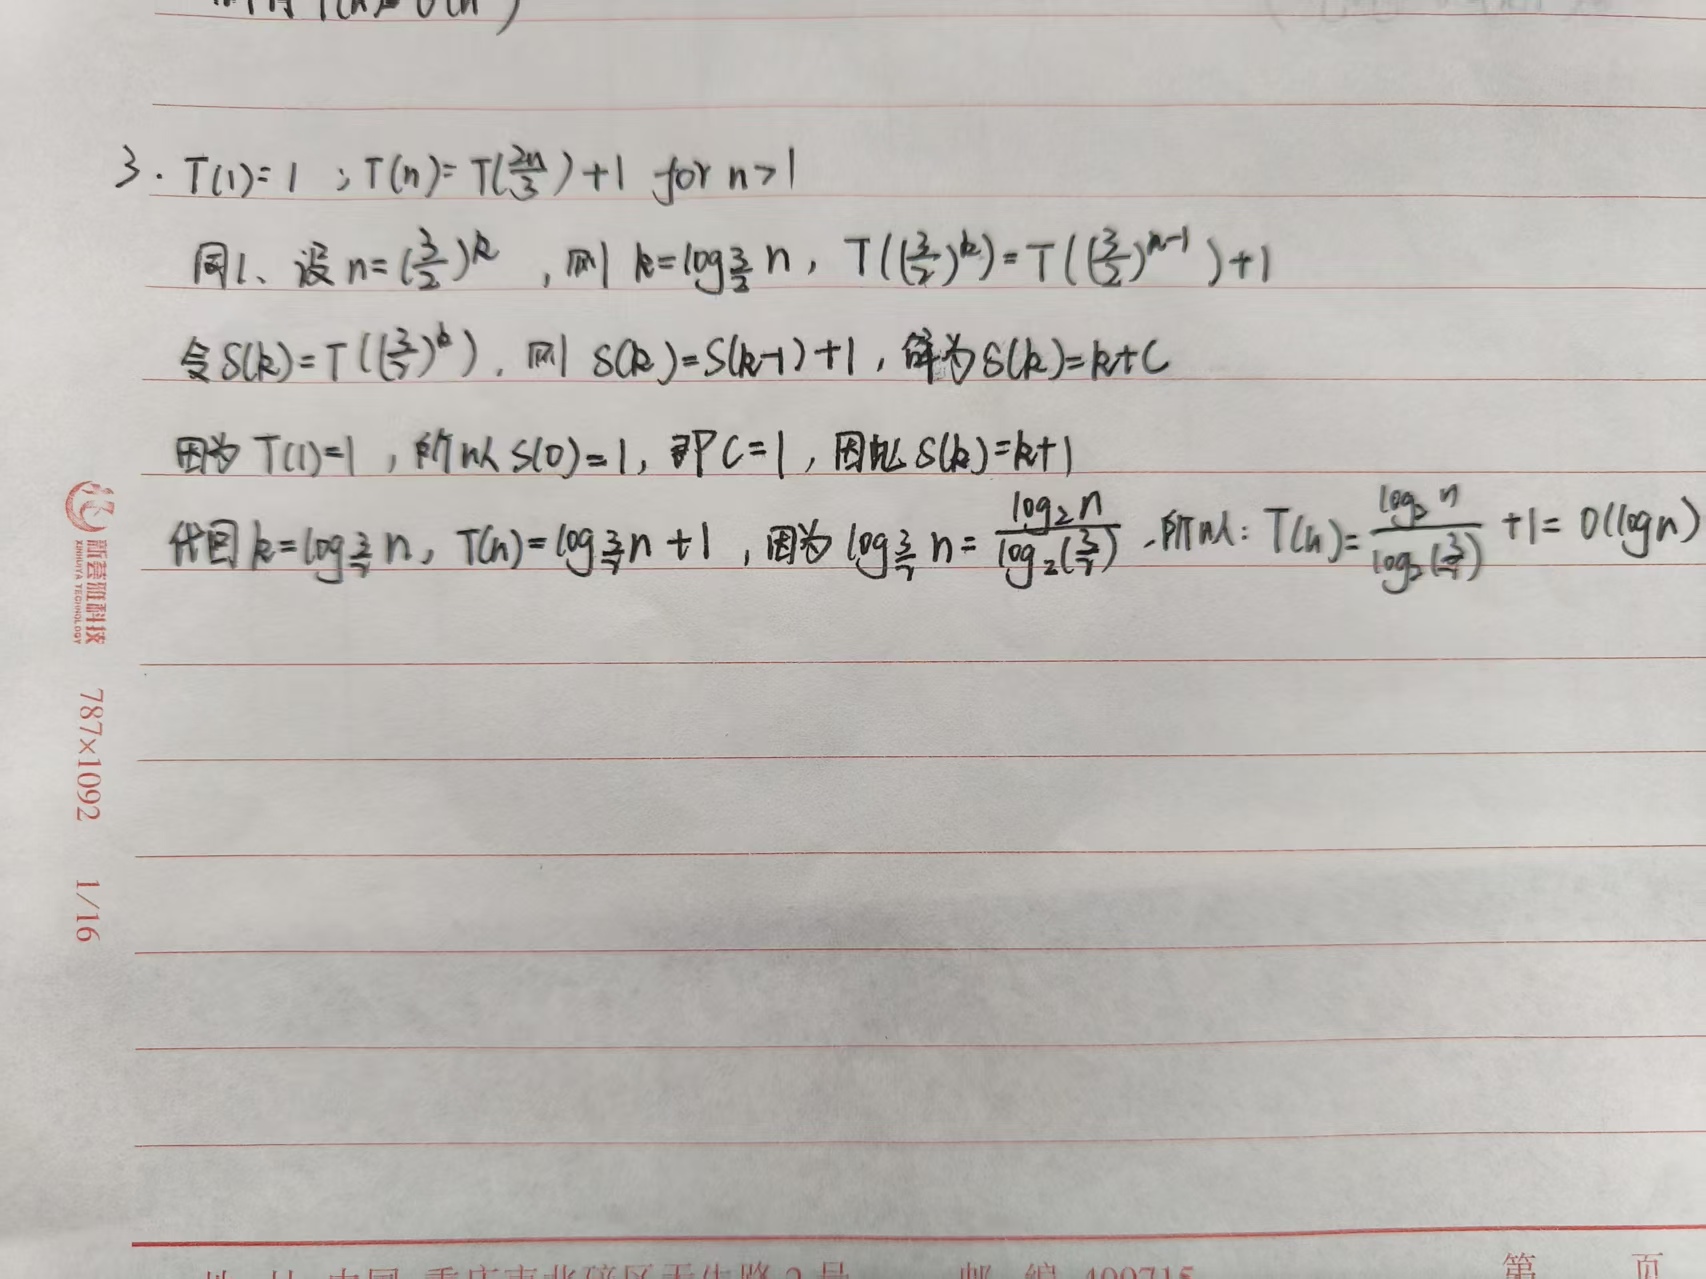 3. T(1)=1 ; T(n)=T(2n/3)+1 for n>1
同1、设n=(3/2)^k ,则 k=log_{3/2} n, T((3/2)^k)=T((3/2)^{k-1})+1
令S(k)=T((3/2)^k). 则 S(k)=S(k-1)+1,解为S(k)=k+C
因为 T(1)=1,所以S(0)=1,即C=1,因此S(k)=k+1
代回k=log_{3/2} n, T(n)=log_{3/2} n+1,因为 log_{3/2} n = log_2 n / log_2(3/2) .所以: T(n)= log_2 n / log_2(3/2) +1= O(log n)
新荟雅科技
XINHUIYA TECHNOLOGY
787×1092 1/16
第 页